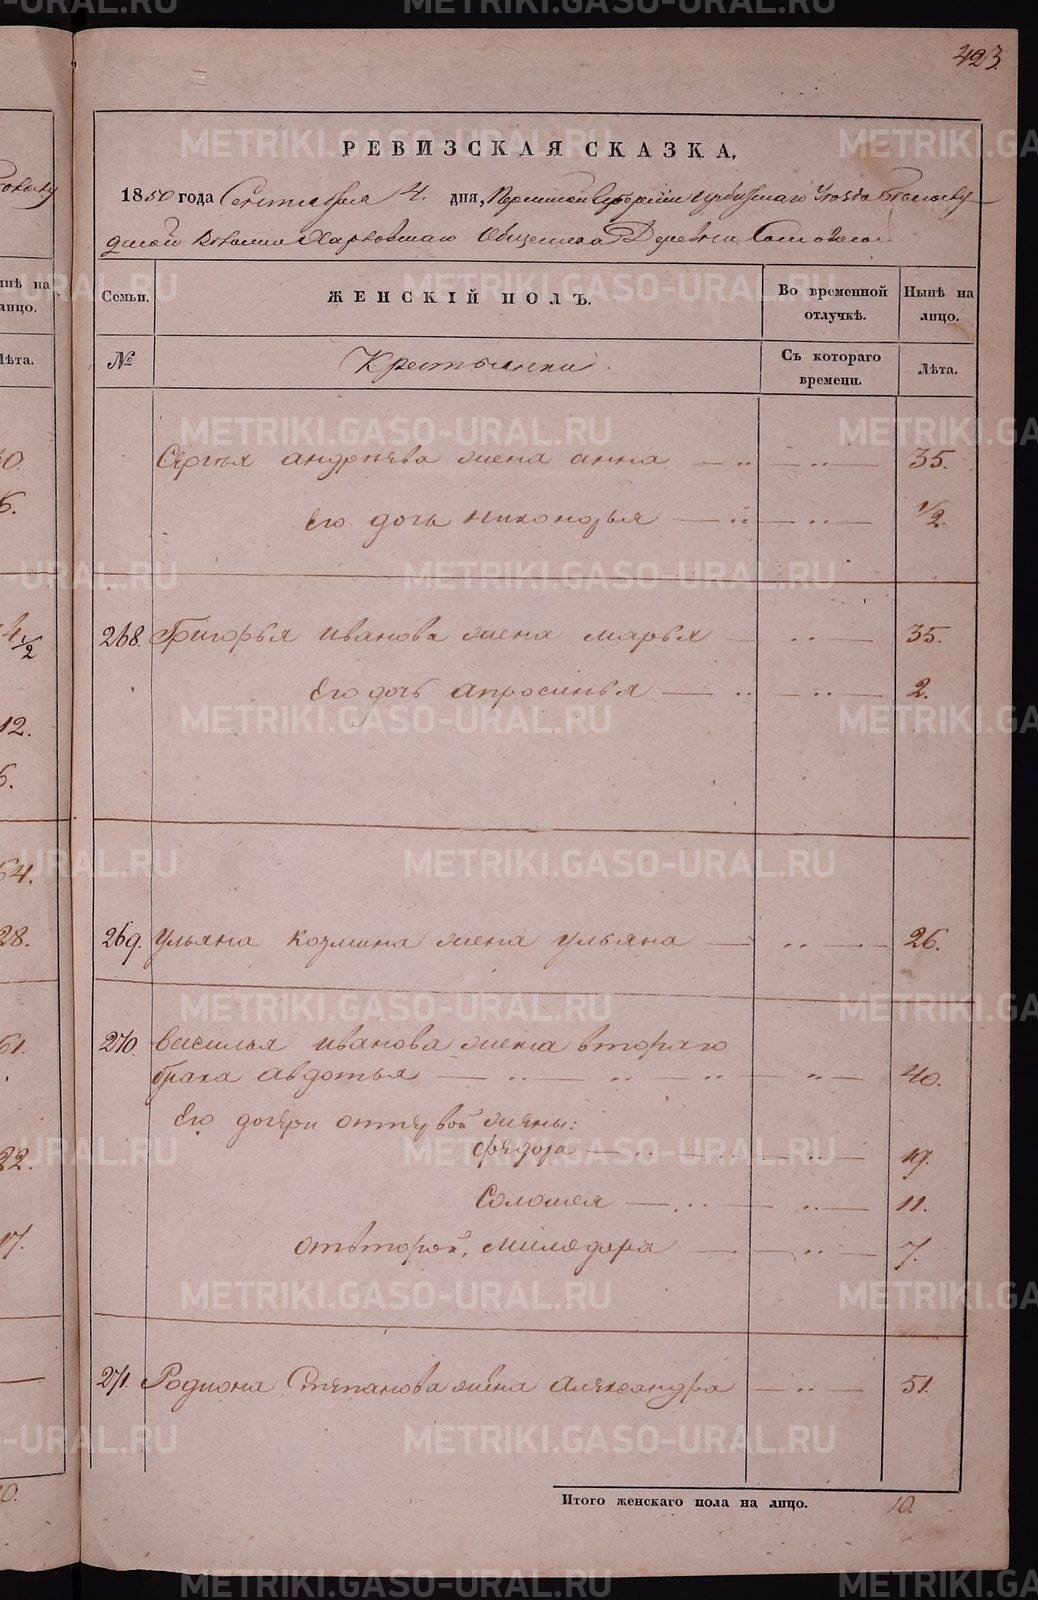 METRIKI.GASO-URAL.RU
423.
РЕВИЗСКАЯ СКАЗКА,
1850 года Сентября 4. дня, Пермской Губернии Ирбитскаго Уезда
волости Харловскаго Общества Деревни
Семьи.
ЖЕНСКІЙ ПОЛЪ.
Во временной отлучкѣ.
Нынѣ на лицо.
№
Крестьянки.
Съ котораго времени.
Лѣта.
Сергѣя андрѣева жена анна — „ — „ — 35.
Его дочь никонорья — „ — „ — 1/2.
268. Григорья иванова жена марья — „ — 35.
Его дочь апросинья — „ — „ — 2.
269. ульяна козмина жена ульяна — „ — 26.
270. василья иванова жена втораго
брака авдотья — „ — „ — „ — 40.
Его дочери отпервой жены:
фядора — „ — „ — 19.
Соломея — „ — „ — 11.
отвторой, милодора — „ — 7.
271. Родиона Степанова жена александра — „ — 51.
Итого женскаго пола на лицо. 10.